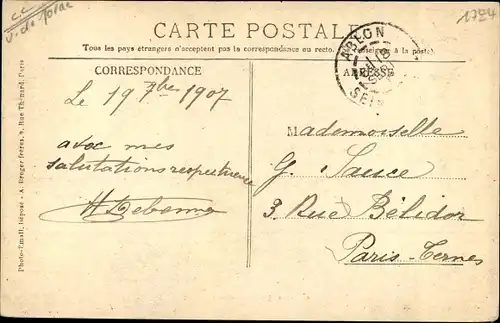 CARTE POSTALE
Tous les pays étrangers n'acceptent pas la correspondance au recto. à la poste).
CORRESPONDANCE
ADRESSE
ABLON
SEI
Le 19 7bre 1907
avec mes
salutations respectueuse
Mademoiselle
G. Sauce
3 Rue Bélidor
Paris-Ternes
Photo-Email, Déposé - A. Breger frères, 9, Rue Thénard, Paris
1724